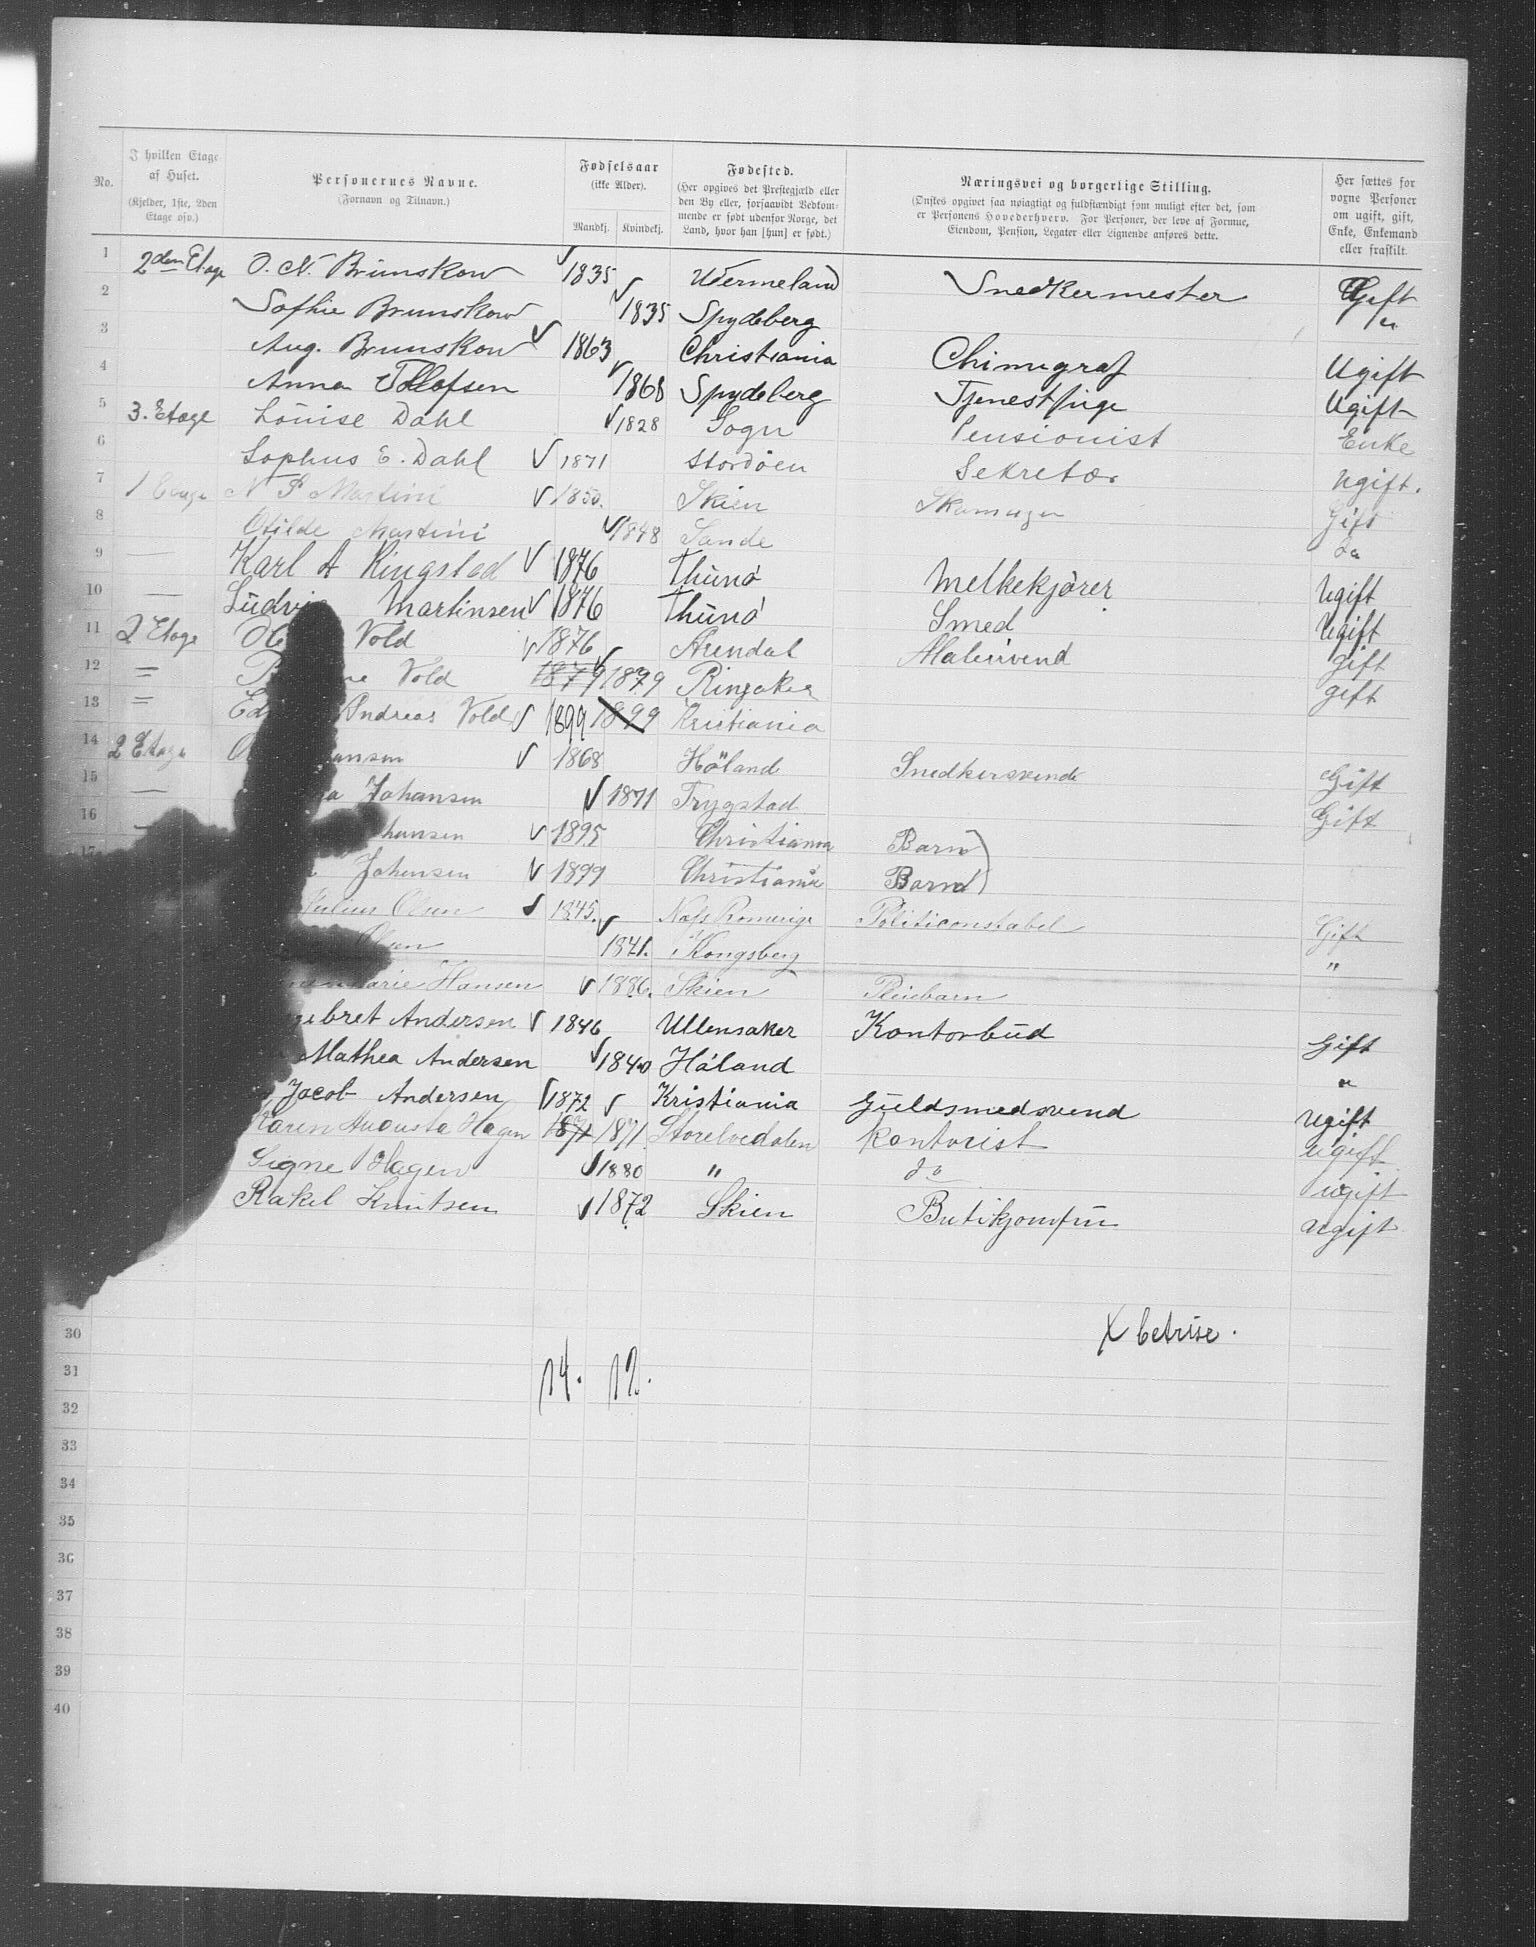 No.
I hvilken Etage af Huset. (Kjelder, 1ste, 2den Etage osv.)
Personernes Navne. (Fornavn og Tilnavn.)
Fødselsaar (ikke Alder). Mandkj. Kvindekj.
Fødested. (Her opgives det Prestegjæld eller den By eller, forsaavidt Vedkommende er født udenfor Norge, det Land, hvor han [hun] er født.)
Næringsvei og borgerlige Stilling. (Ønskes opgivet saa nøiagtigt og fuldstændigt som muligt efter det, som er Personens Hovederhverv. For Personer, der leve af Formue, Eiendom, Pension, Legater eller Lignende anføres dette.)
Her sættes for voxne Personer om ugift, gift, Enke, Enkemand eller fraskilt.
1 2den Etage O. N. Brunskow 1835 Wermeland Snedkermester Gift
2 Sofhie Brunskow 1835 Spydeberg "
3 Aug. Brunskow 1863 Christiania Chimigraf Ugift
4 Anna Tollofsen 1868 Spydeberg Tjenestpige Ugift
5 3. Etage Louise Dahl 1828 Sogn Pensionist Enke
6 Sophus E. Dahl 1871 Stordöen Sekretær ugift.
7 1 Etage N P Martini 1850. Skien Skomager Gift
8 Otilde Martini 1848 Sande do
9 — Karl A Ringstad 1876 Thunö Melkekjörer Ugift
10 — Ludvig Martinsen 1876 Thunö Smed Ugift
11 2 Etage Vold 1876 Arendal Malersvend gift
12 = Vold 1879 1879 Ringaker gift
13 = Andreas Vold 1899 1899 Kristiania
14 2 Etage 1868 Höland Snedkersvend Gift
15 — Johansen 1871 Trygstad Gift
16 1895 Christiania Barn
17 Johansen 1899 Christiania Barn
Julius Olsen 1845. Næs Romerige Politiconstabel Gift
Olsen 1841. Kongsberg "
Marie Hansen 1886. Skien Pleiebarn
Andersen 1846 Ullensaker Kontorbud Gift
Mathea Andersen 1840 Håland "
Jacob Andersen 1872 Kristiania Guldsmedsvend ugift
Karen Augusta Hagen 1871 1871 Storelvedalen Kontorist ugift
Signe Hagen 1880 " do ugift
Rakel Knutsen 1872 Skien Butikjomfru ugift
X betrise.
30
31 14. 12.
32
33
34
35
36
37
38
39
40